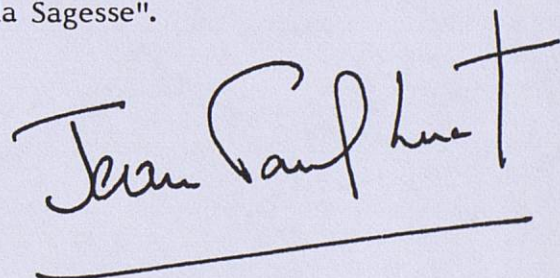 la Sagesse".
Jean Paul Luc